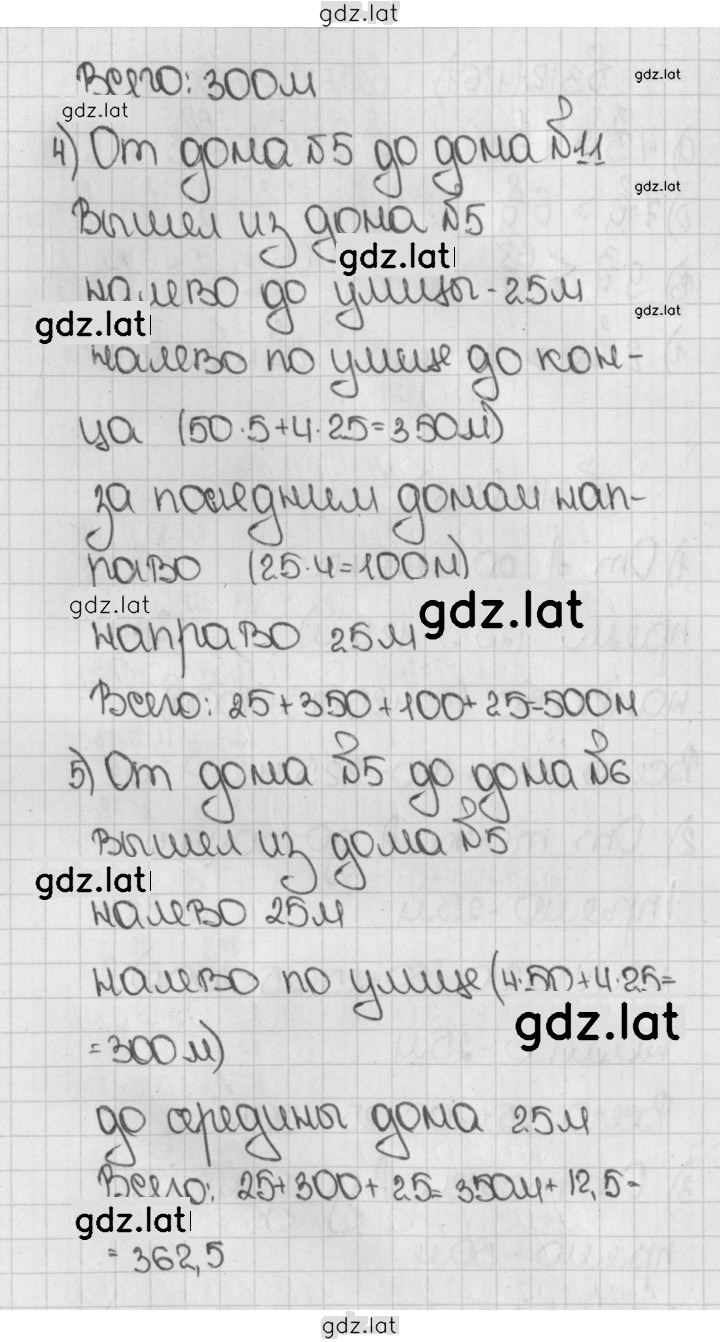 gdz.lat
Всего: 300м
gdz.lat
gdz.lat
4) От дома №5 до дома №11
gdz.lat
Вышел из дома №5
gdz.lat
налево до улицы - 25м
gdz.lat
gdz.lat
налево по улице до кон-
ца (50·5+4·25=350м)
за последним домом нап-
раво (25·4=100м)
gdz.lat
gdz.lat
направо 25м
Всего: 25+350+100+25=500м
5) От дома №5 до дома №6
Вышел из дома №5
gdz.lat
налево 25м
налево по улице (4·50+4·25=
gdz.lat
=300м)
до середины дома 25м
Всего: 25+300+25=350м+12,5=
gdz.lat
=362,5
gdz.lat